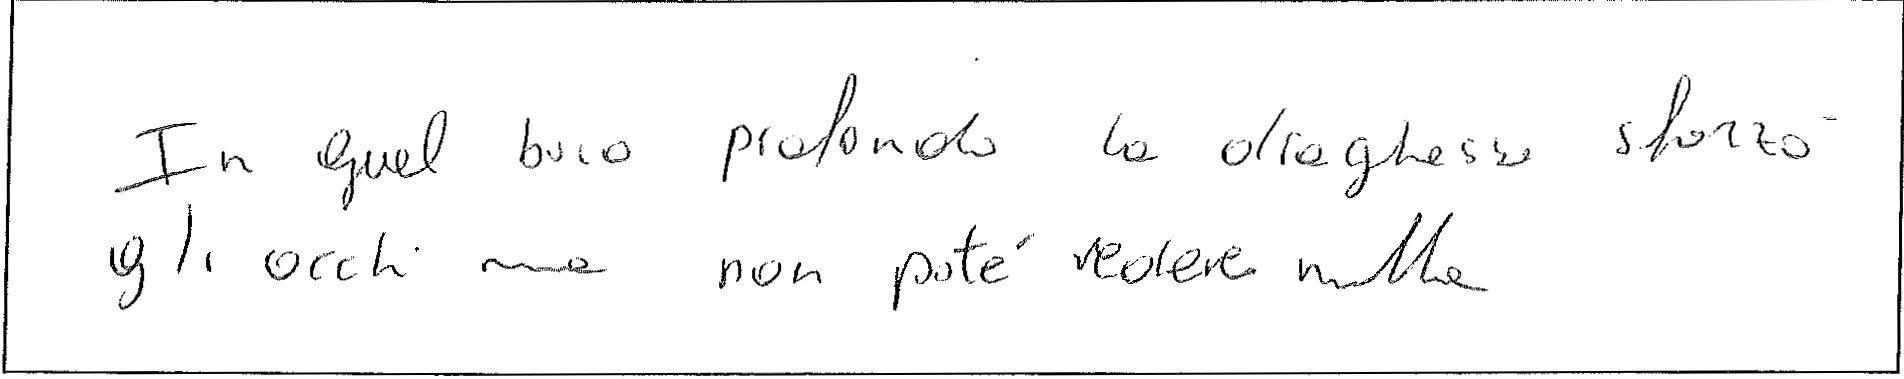 In quel buco profondo la draghessa sforzò
gli occhi ma non poté vedere nulla